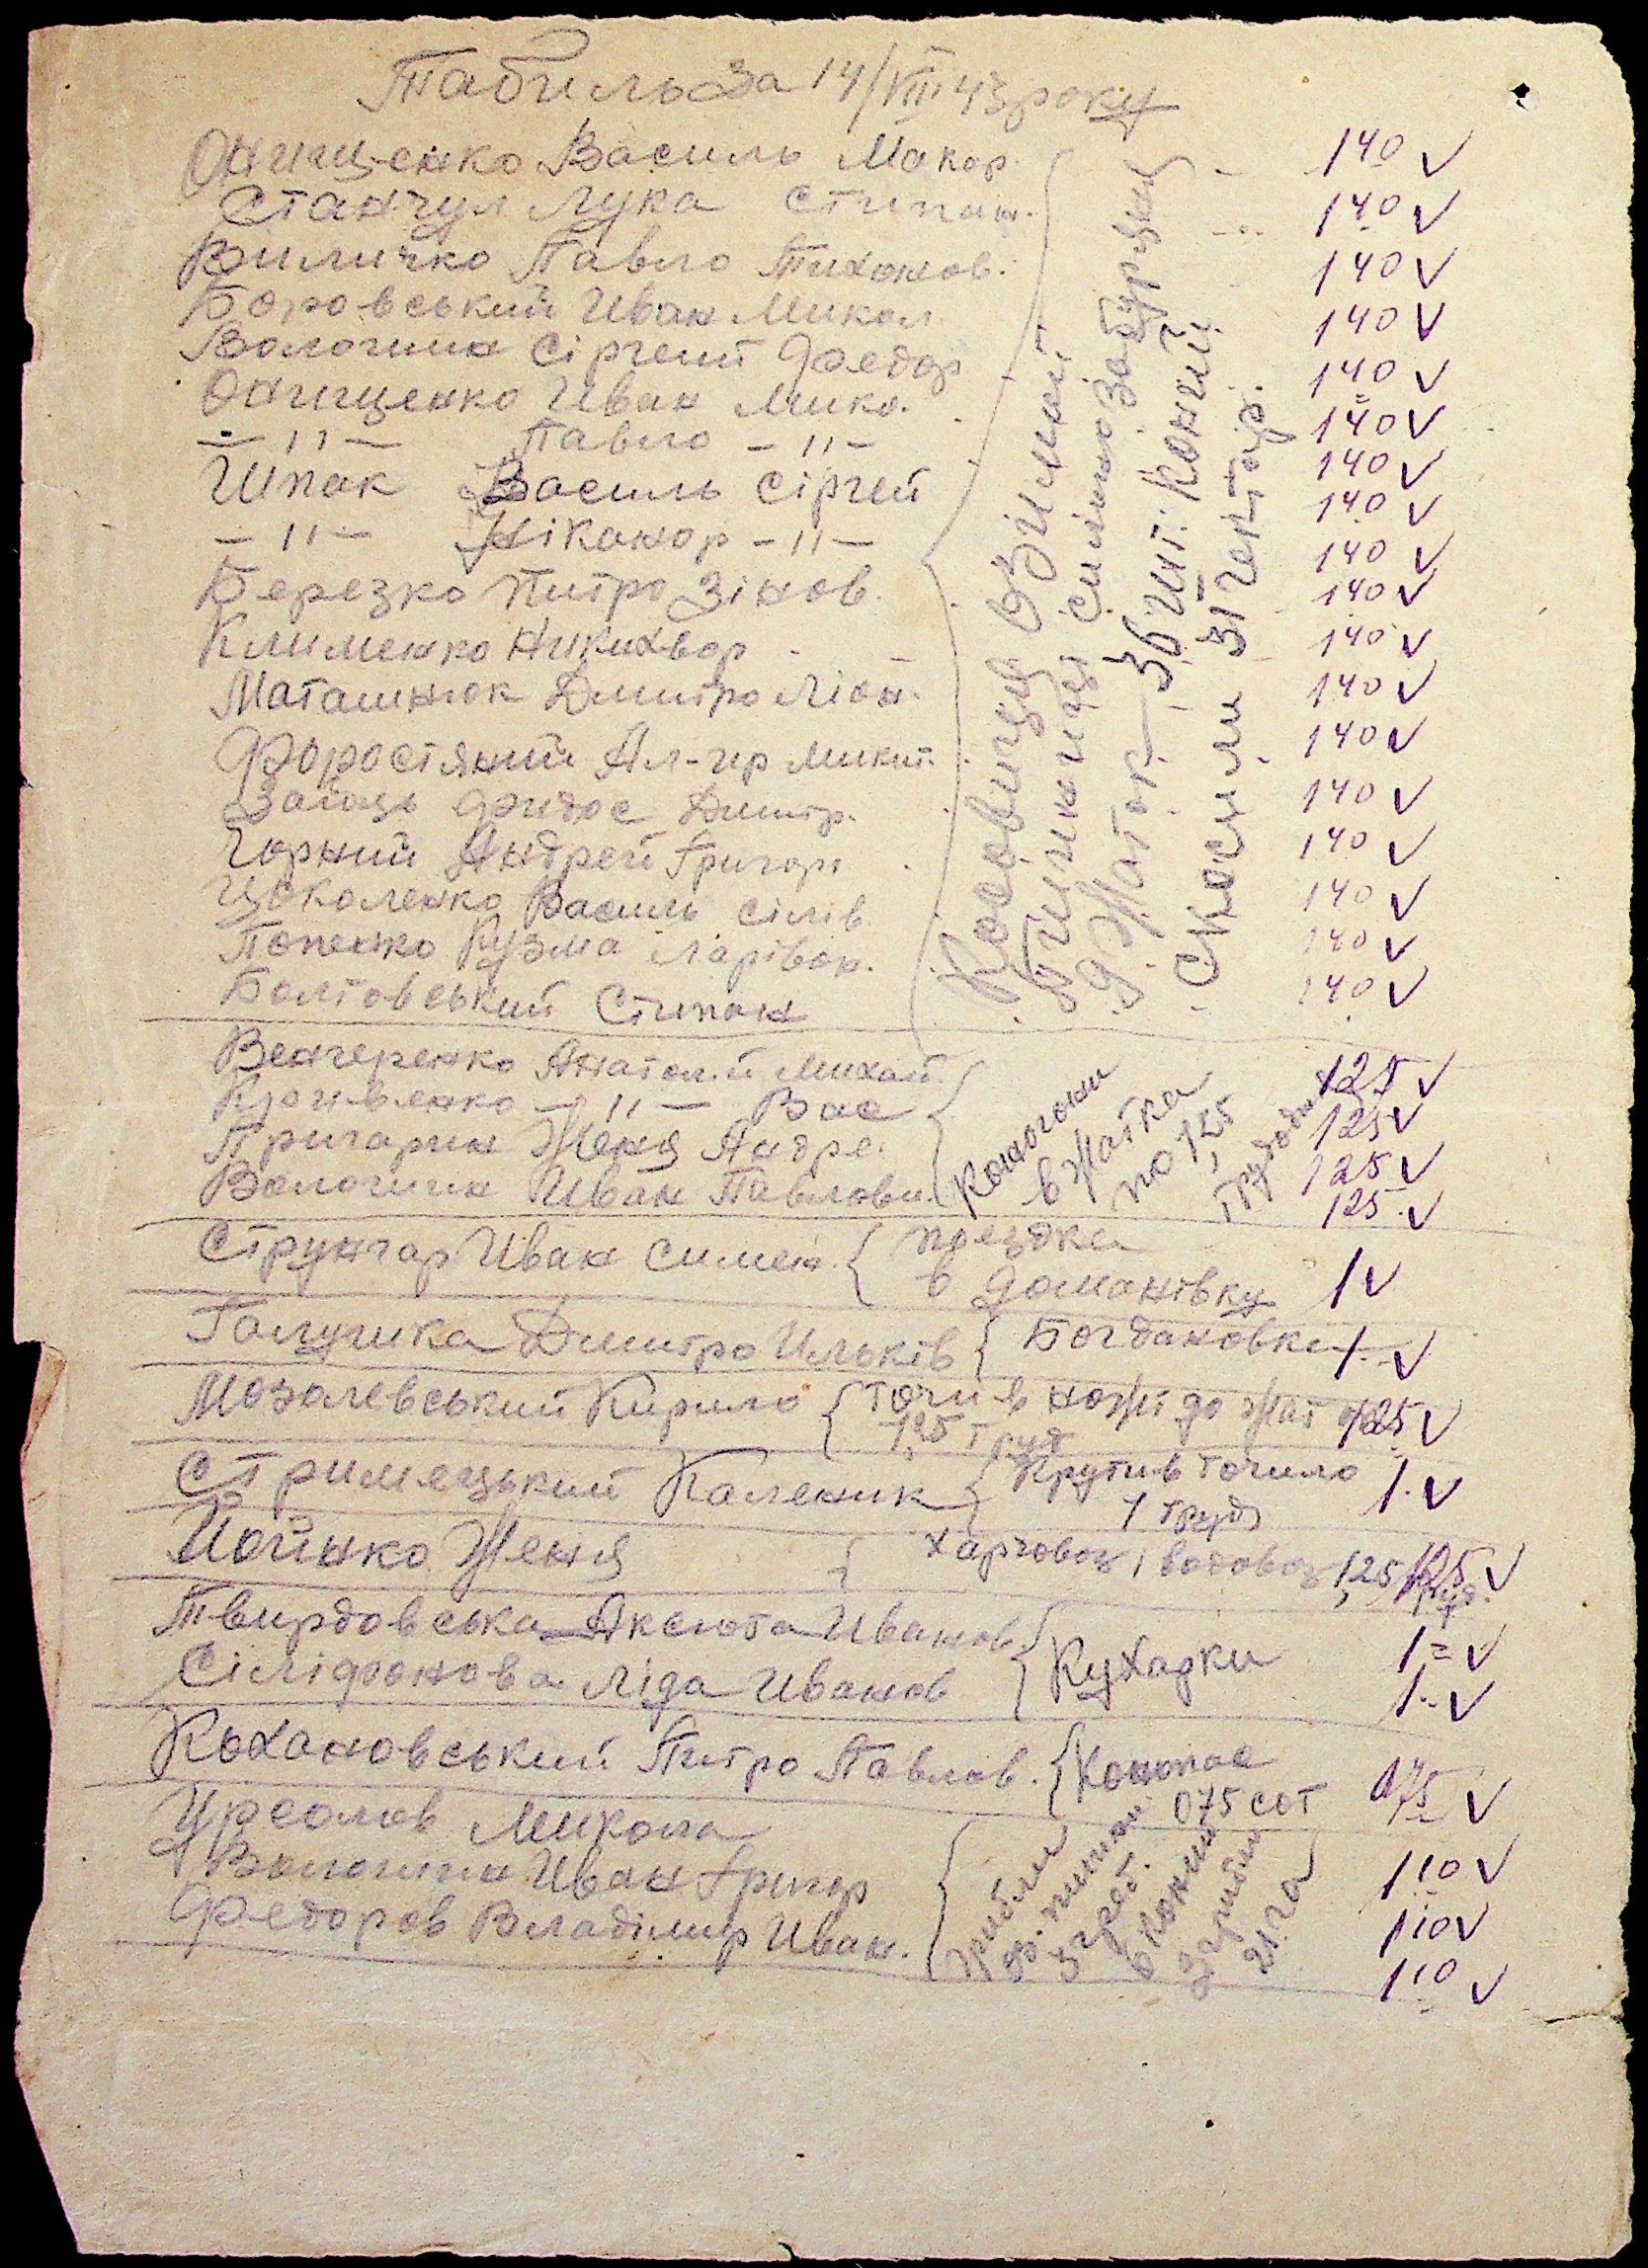 Табиль за 14/VIII 43 року
Онищенко Василь Макар. 140 ✓
Станчул Лука Стипан. 140 ✓
Виличко Павло Тихонов. 140 ✓
Боровський Иван Микол. 140 ✓
Вологина Сіргей Федор 140 ✓
Онищенко Иван Мико. 140 ✓
— " — Павло — " — 140 ✓
Шпак Василь Сіргей 140 ✓
— " — Ніканор — " — 140 ✓
Березко Питро Зінов. 140 ✓
Клименко Никихвор 140 ✓
Маташнюк Дмитро Ліон. 140 ✓
Форостяний Ал-ир Микит. 140 ✓
Заїць Фидос Дмитр. 140 ✓
Чорний Андрей Григор 140 ✓
Цоколенко Василь Сілів 140 ✓
Попенко Кузма Ларівон. 140 ✓
Болтовський Стипан 140 ✓
Косовиця озимої
пшениці сильно забурянен
9 жаток — 36 шт. коний
скосили 31 гектар.
Венчеренко Анатолий Михай. 125 ✓
— " — Вас 125 ✓
Григорин Женя Андре. 125 ✓
Вологина Иван Павлови. 125 ✓
Коногони
в жатка
по 1,25
трудодня
Струнгар Иван Симен. { поездка
в Доманівку 1 ✓
Галушка Дмитро Ильків { Богдановка 1 ✓
Мозалевський Кирило { точив ножі до жат 125 ✓
1,25 труд
Стримецький Каленик { Крутив точило 1 ✓
1 труд
Йойнко Женя { Харчовоз, водовоз 1,25 труд. 125 ✓
Твирдовська Аксюта Иванов. 1 ✓
Сіліфонова Ліда Иванов 1 ✓
Кухарки
Кохановський Питро Павлов. { Конопас 075 ✓
075 сот
Урсолов Микола 110 ✓
Вологина Иван Григор 110 ✓
Федоров Владімир Иван. 110 ✓
3 греб.
6 коний
згрибли
21 га